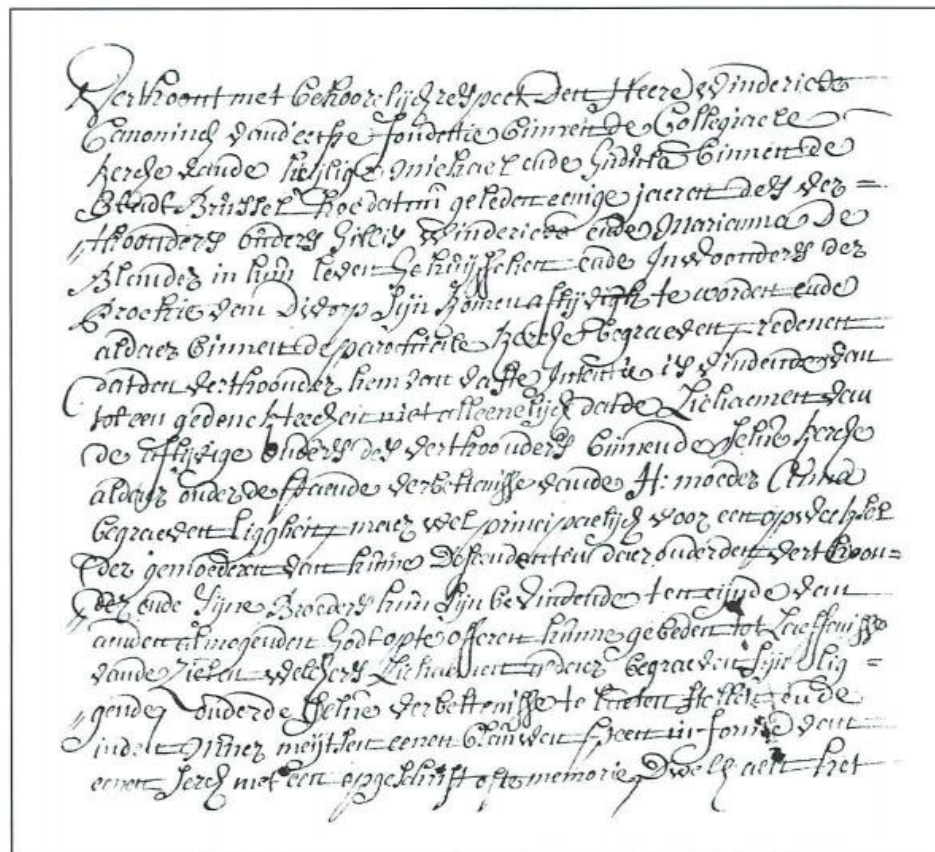 Verthoont met behoorelijck respect den Heere Winderickx
Canoninck vand'eerste fondattie binnen de Collegiaele
kercke vande heijlige Michael ende Gudula binnen de
Stadt Brussel hoe datter geleden eenige jaeren des ver=
thoonders ouders Gillis Winderickx ende Marianna De
Blander in hun leven gehuijsschen ende Inwoonders der
Prochie van Dworp sijn komen aflijvigh te worden ende
aldaer binnen de parochiale kercke begraeven, redenen
dat den verthoonder hem van vaste Intentie is vindende van
tot een gedenckteecken niet alleenelijck dat de Lichaemen van
de aflijvige ouders des verthoonders binnen de selve kercke
aldaer onder de staende verbettenisse vande H: moeder Anna
begraeven ligghen, maer wel principaelijck voor een opwecksel
der gemoederen van hunne Descendenten daer onder den verthoon=
der ende sijne Broeders hun sijn bevindende ten eijnde van
aan den almogenden Godt op te offeren hunne gebeden tot Laeffenisse
vande zielen welckers Lichaemen aldaer begraeven sijn lig=
gende, onder de selve verbettenisse te laeten stellen ende
inden muer meijtsen eenen blauwen steen in forme van
eenen serck met een opgeschrift ofte memorie, Dwelck aen het